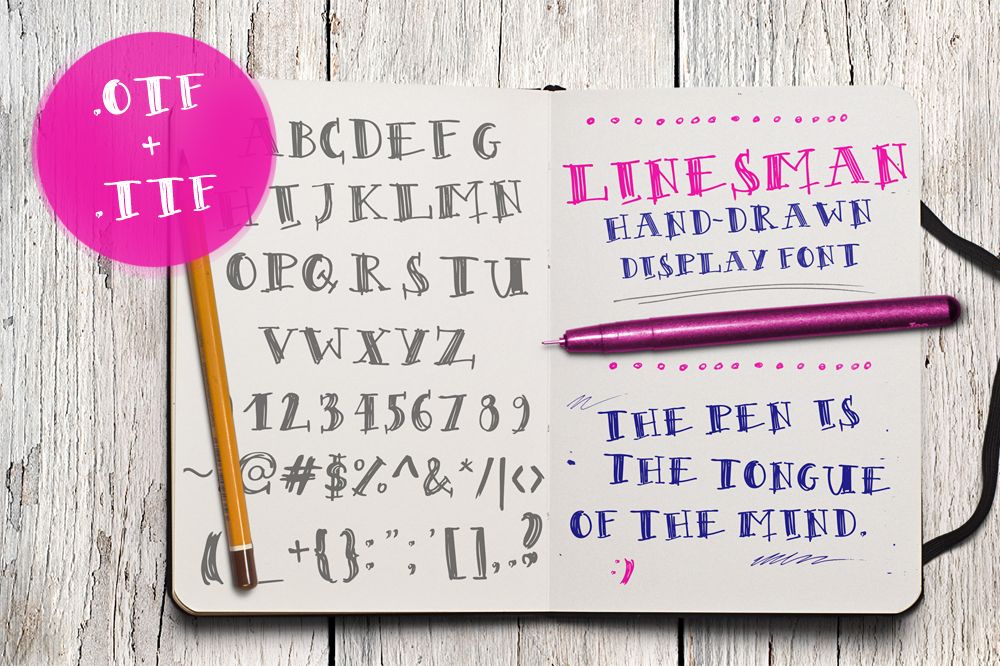 .OTF
+
.TTF
A B C D E F G
H I J K L M N
O P Q R S T U
V W X Y Z
1 2 3 4 5 6 7 8 9
~ @ # $ % ^ & * / | < >
( _ + { } : " ; ' [ ] , . ?
LINESMAN
HAND-DRAWN
DISPLAY FONT
THE PEN IS
THE TONGUE
OF THE MIND.
:)